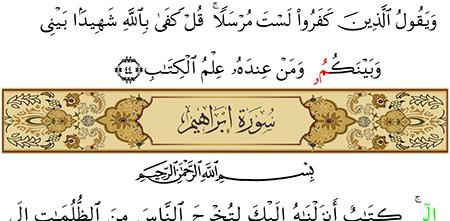 وَيَقُولُ ٱلَّذِينَ كَفَرُواْ لَسْتَ مُرْسَلًاۚ قُلْ كَفَىٰ بِٱللَّهِ شَهِيدَۢا بَيْنِى
وَبَيْنَكُمُۥ وَمَنْ عِندَهُۥ عِلْمُ ٱلْكِتَٰبِ ٤٤
سُورَةُ إِبْرَاهِيم
بِسْمِ ٱللَّهِ ٱلرَّحْمَٰنِ ٱلرَّحِيمِ
الٓرۚ كِتَٰبٌ أَنزَلْنَٰهُ إِلَيْكَ لِتُخْرِجَ ٱلنَّاسَ مِنَ ٱلظُّلُمَٰتِ إِلَى